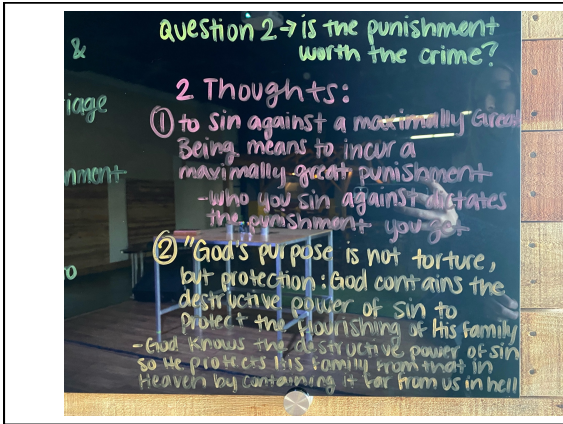 Question 2 → is the punishment
worth the crime?
&
iage
nment
2 Thoughts:
① to sin against a maximally Great
Being means to incur a
maximally great punishment
- who you sin against dictates
the punishment you get
② "God's purpose is not torture,
but protection: God contains the
destructive power of sin to
protect the flourishing of His family
- God knows the destructive power of sin
so He protects His family from that in
Heaven by containing it far from us in hell